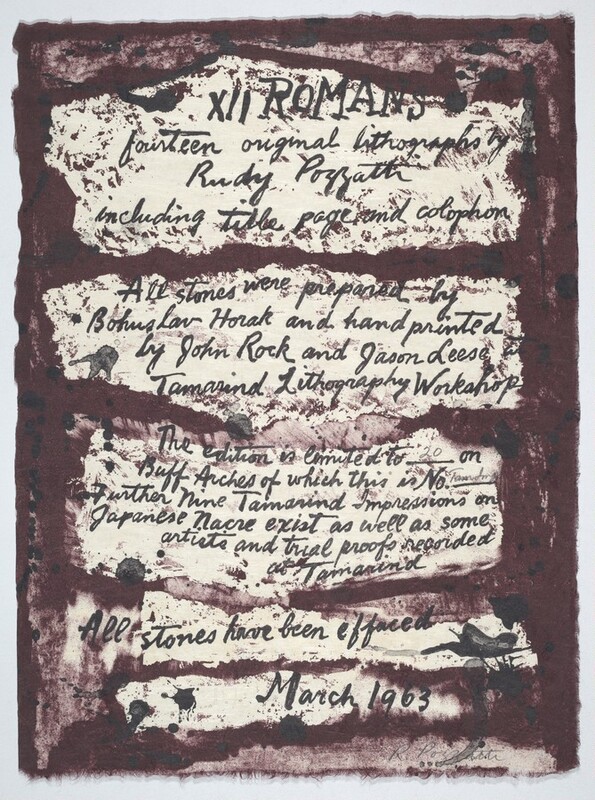 XII ROMANS
fourteen original lithographs by
Rudy Pozzatti
including title page and colophon
All stones were prepared by
Bohuslav Horak and hand printed
by John Rock and Jason Leese at
Tamarind Lithography Workshop
The edition is limited to 20 on
Buff Arches of which this is No. Tamarind
Further Nine Tamarind Impressions on
Japanese Nacre exist as well as some
artists and trial proofs recorded
at Tamarind
All stones have been effaced
March 1963
R. Pozzatti